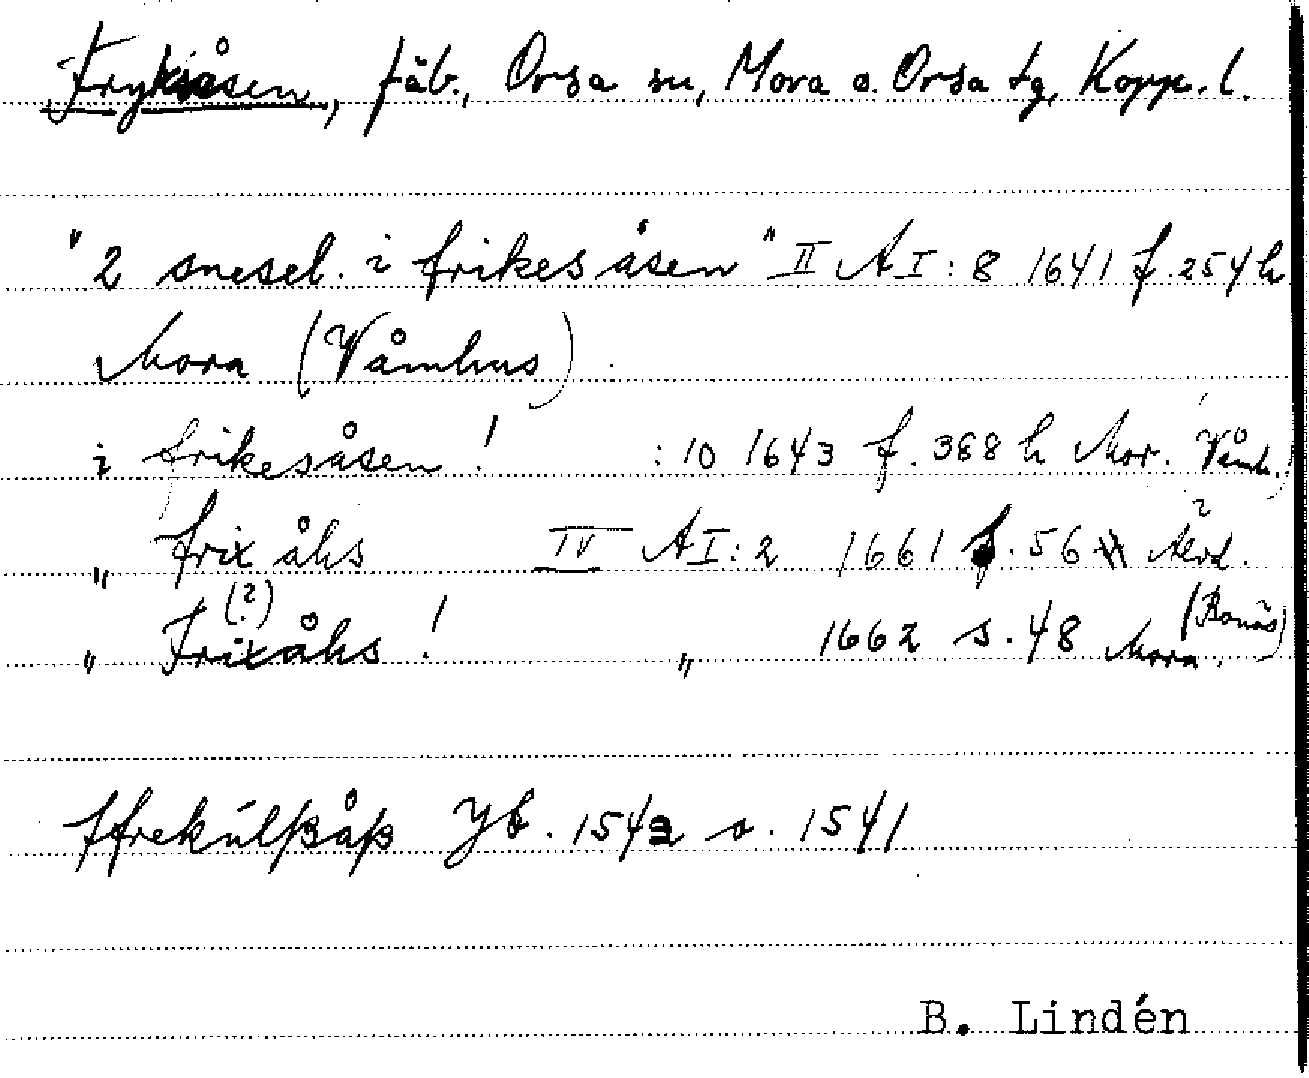 Fryksåsen, fäb., Orsa sn, Mora o. Orsa tg, Kopp. l.
"2 snesel. i frikesåsen" II A I: 8 1641 f. 254 h
Mora (Våmhus).
i frikesåsen! : 10 1643 f. 368 h Mor. Våmh.)
" frix åhs IV A I: 2 1661 f. 56
(?)
" Frixåhs! " 1662 s. 48 Mora (Bonäs)
Yb. 1542 o. 1541
B. Lindén